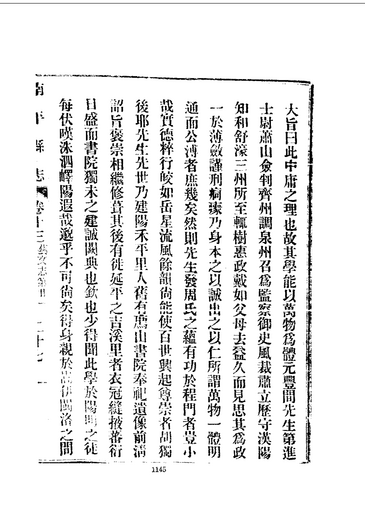 大旨曰此中庸之理也故其學能以萬物爲體元豐間先生第進
士尉蕭山僉判齊州調泉州召爲監察御史風裁肅立歷守漢陽
知和舒濠三州所至輒樹惠政戴如父母去益久而見思其爲政
一於薄斂謹刑痌瘝乃身本之以誠出之以仁所謂萬物一體明
通而公溥者庶幾矣然則先生發周氏之蘊有功於程門者豈小
哉質德粹行皎如岳星流風餘韻尚能使百世興起尊崇者胡獨
後耶先生先世乃建陽禾平里人舊有廌山書院奉祀遺像前淸
詔旨褒崇相繼修葺其後有徙延平之吉溪里者衣冠縫掖蕃衍
日盛而書院獨未之建誠闕典也欽也少得聞此學於陽明之徒
每伏嘆洙泗嶧陽遐哉邈乎不可尙矣得身親於濂伊閩洛之間
南平縣志
卷十三藝文志
二十七
1145